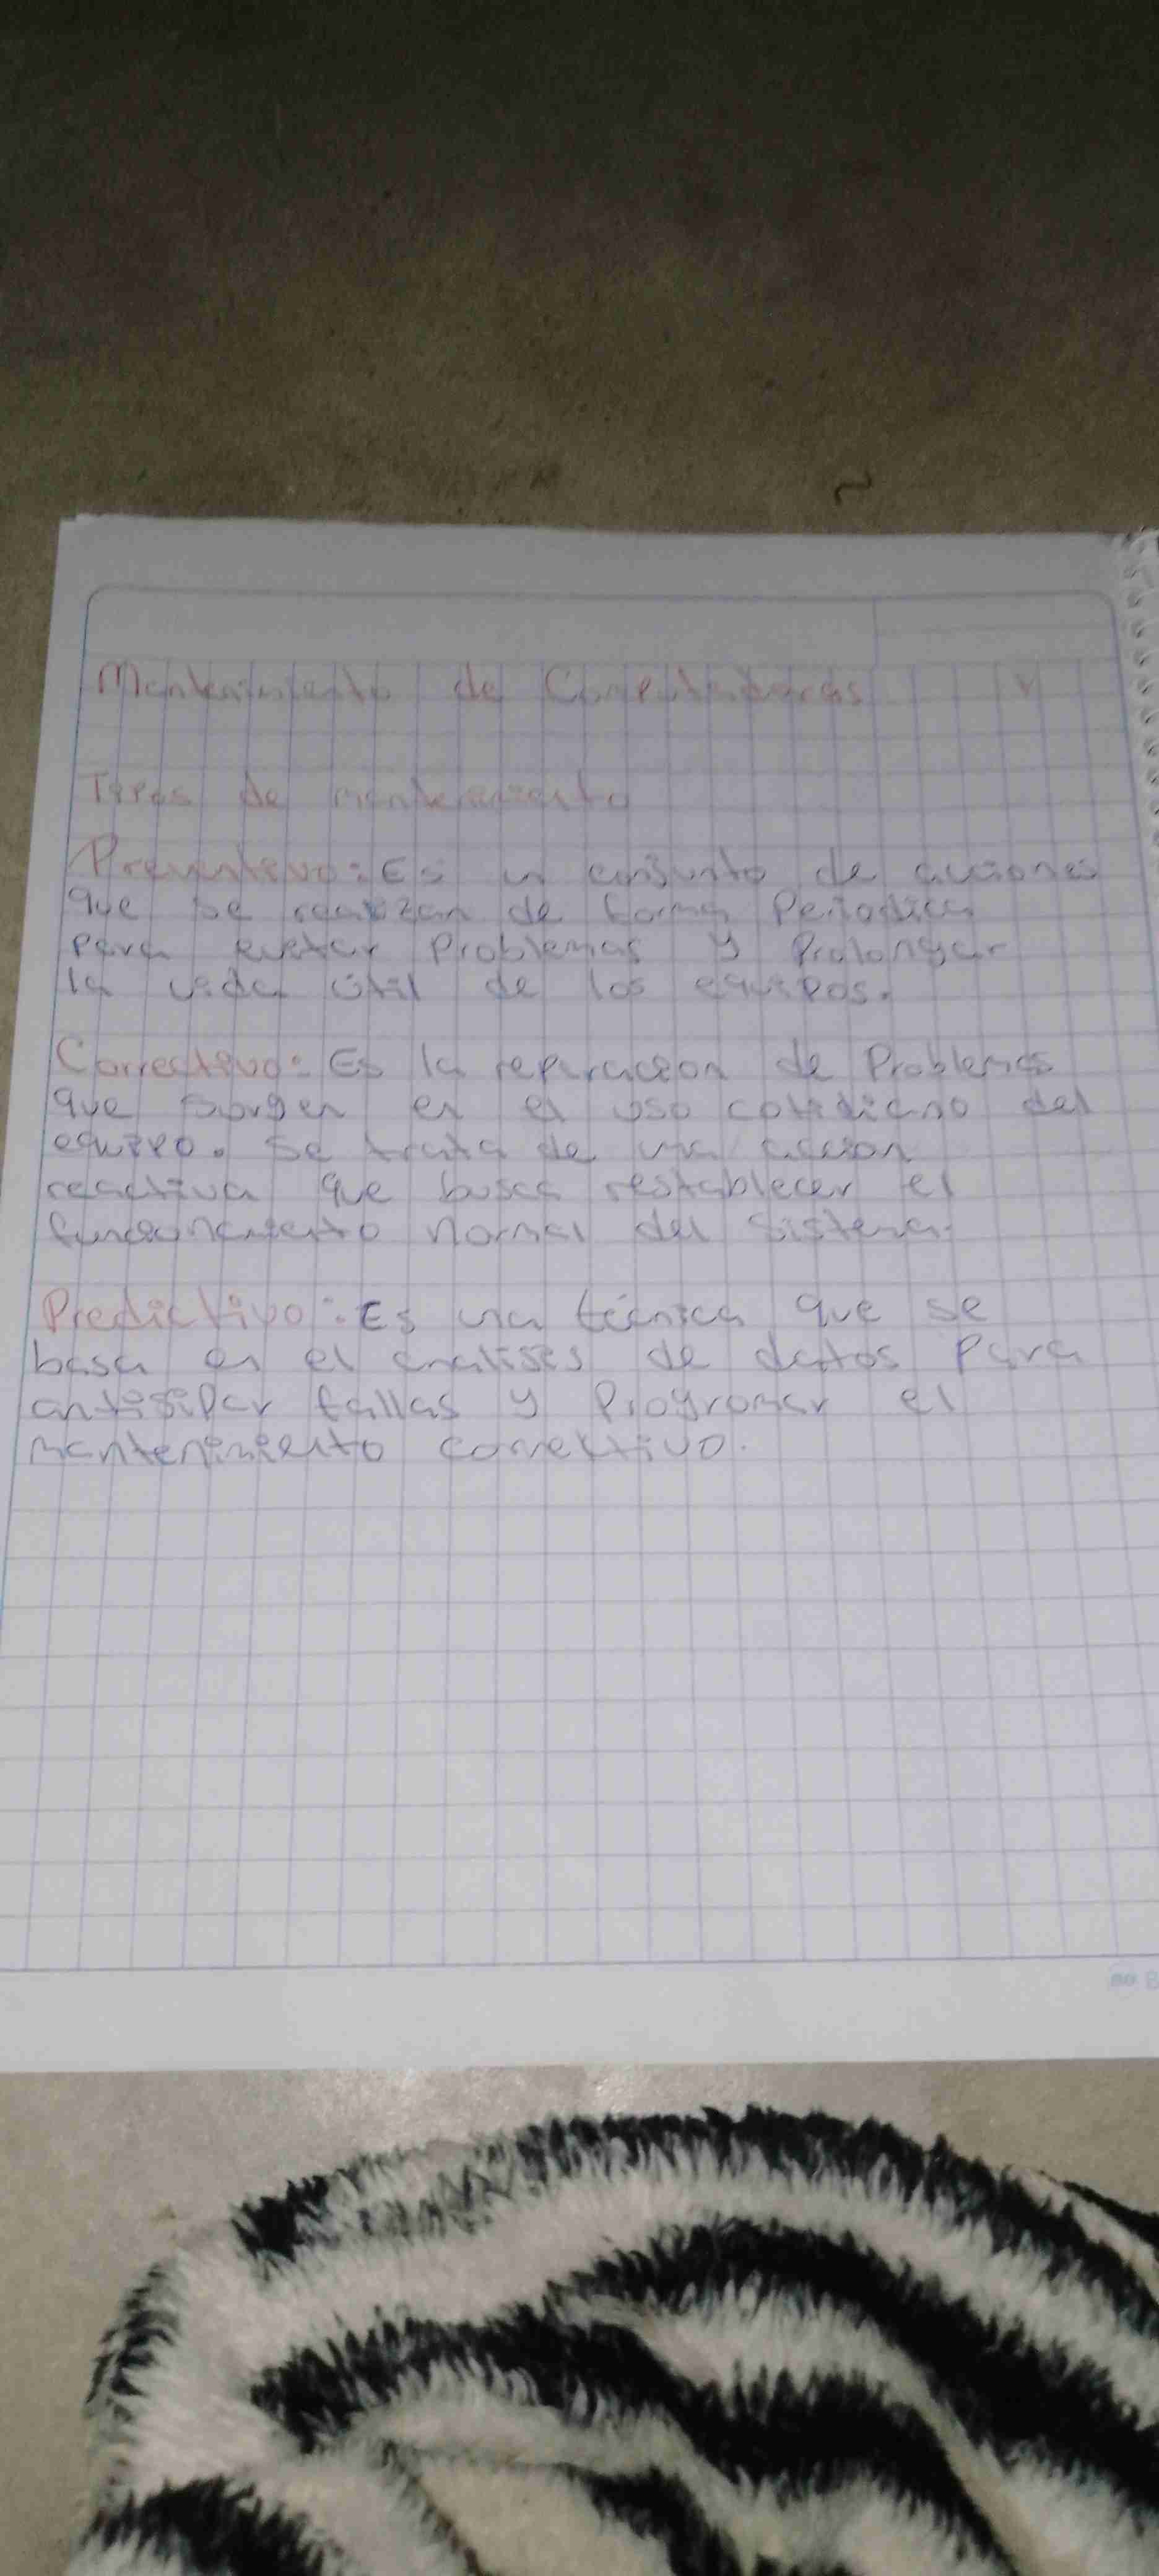 Mantenimiento de Computadoras
Tipos de mantenimiento
Preventivo: Es un conjunto de acciones
que se realizan de forma Periodica
para evitar Problemas y Prolongar
la vida útil de los equipos.
Correctivo: Es la reparacion de Problemas
que surgen en el uso cotidiano del
equipo. Se trata de una accion
reactiva que busca restablecer el
funcionamiento normal del sistema.
Predictivo: Es una técnica que se
basa en el analises de datos para
antisipar fallas y Programar el
mantenimiento correctivo.